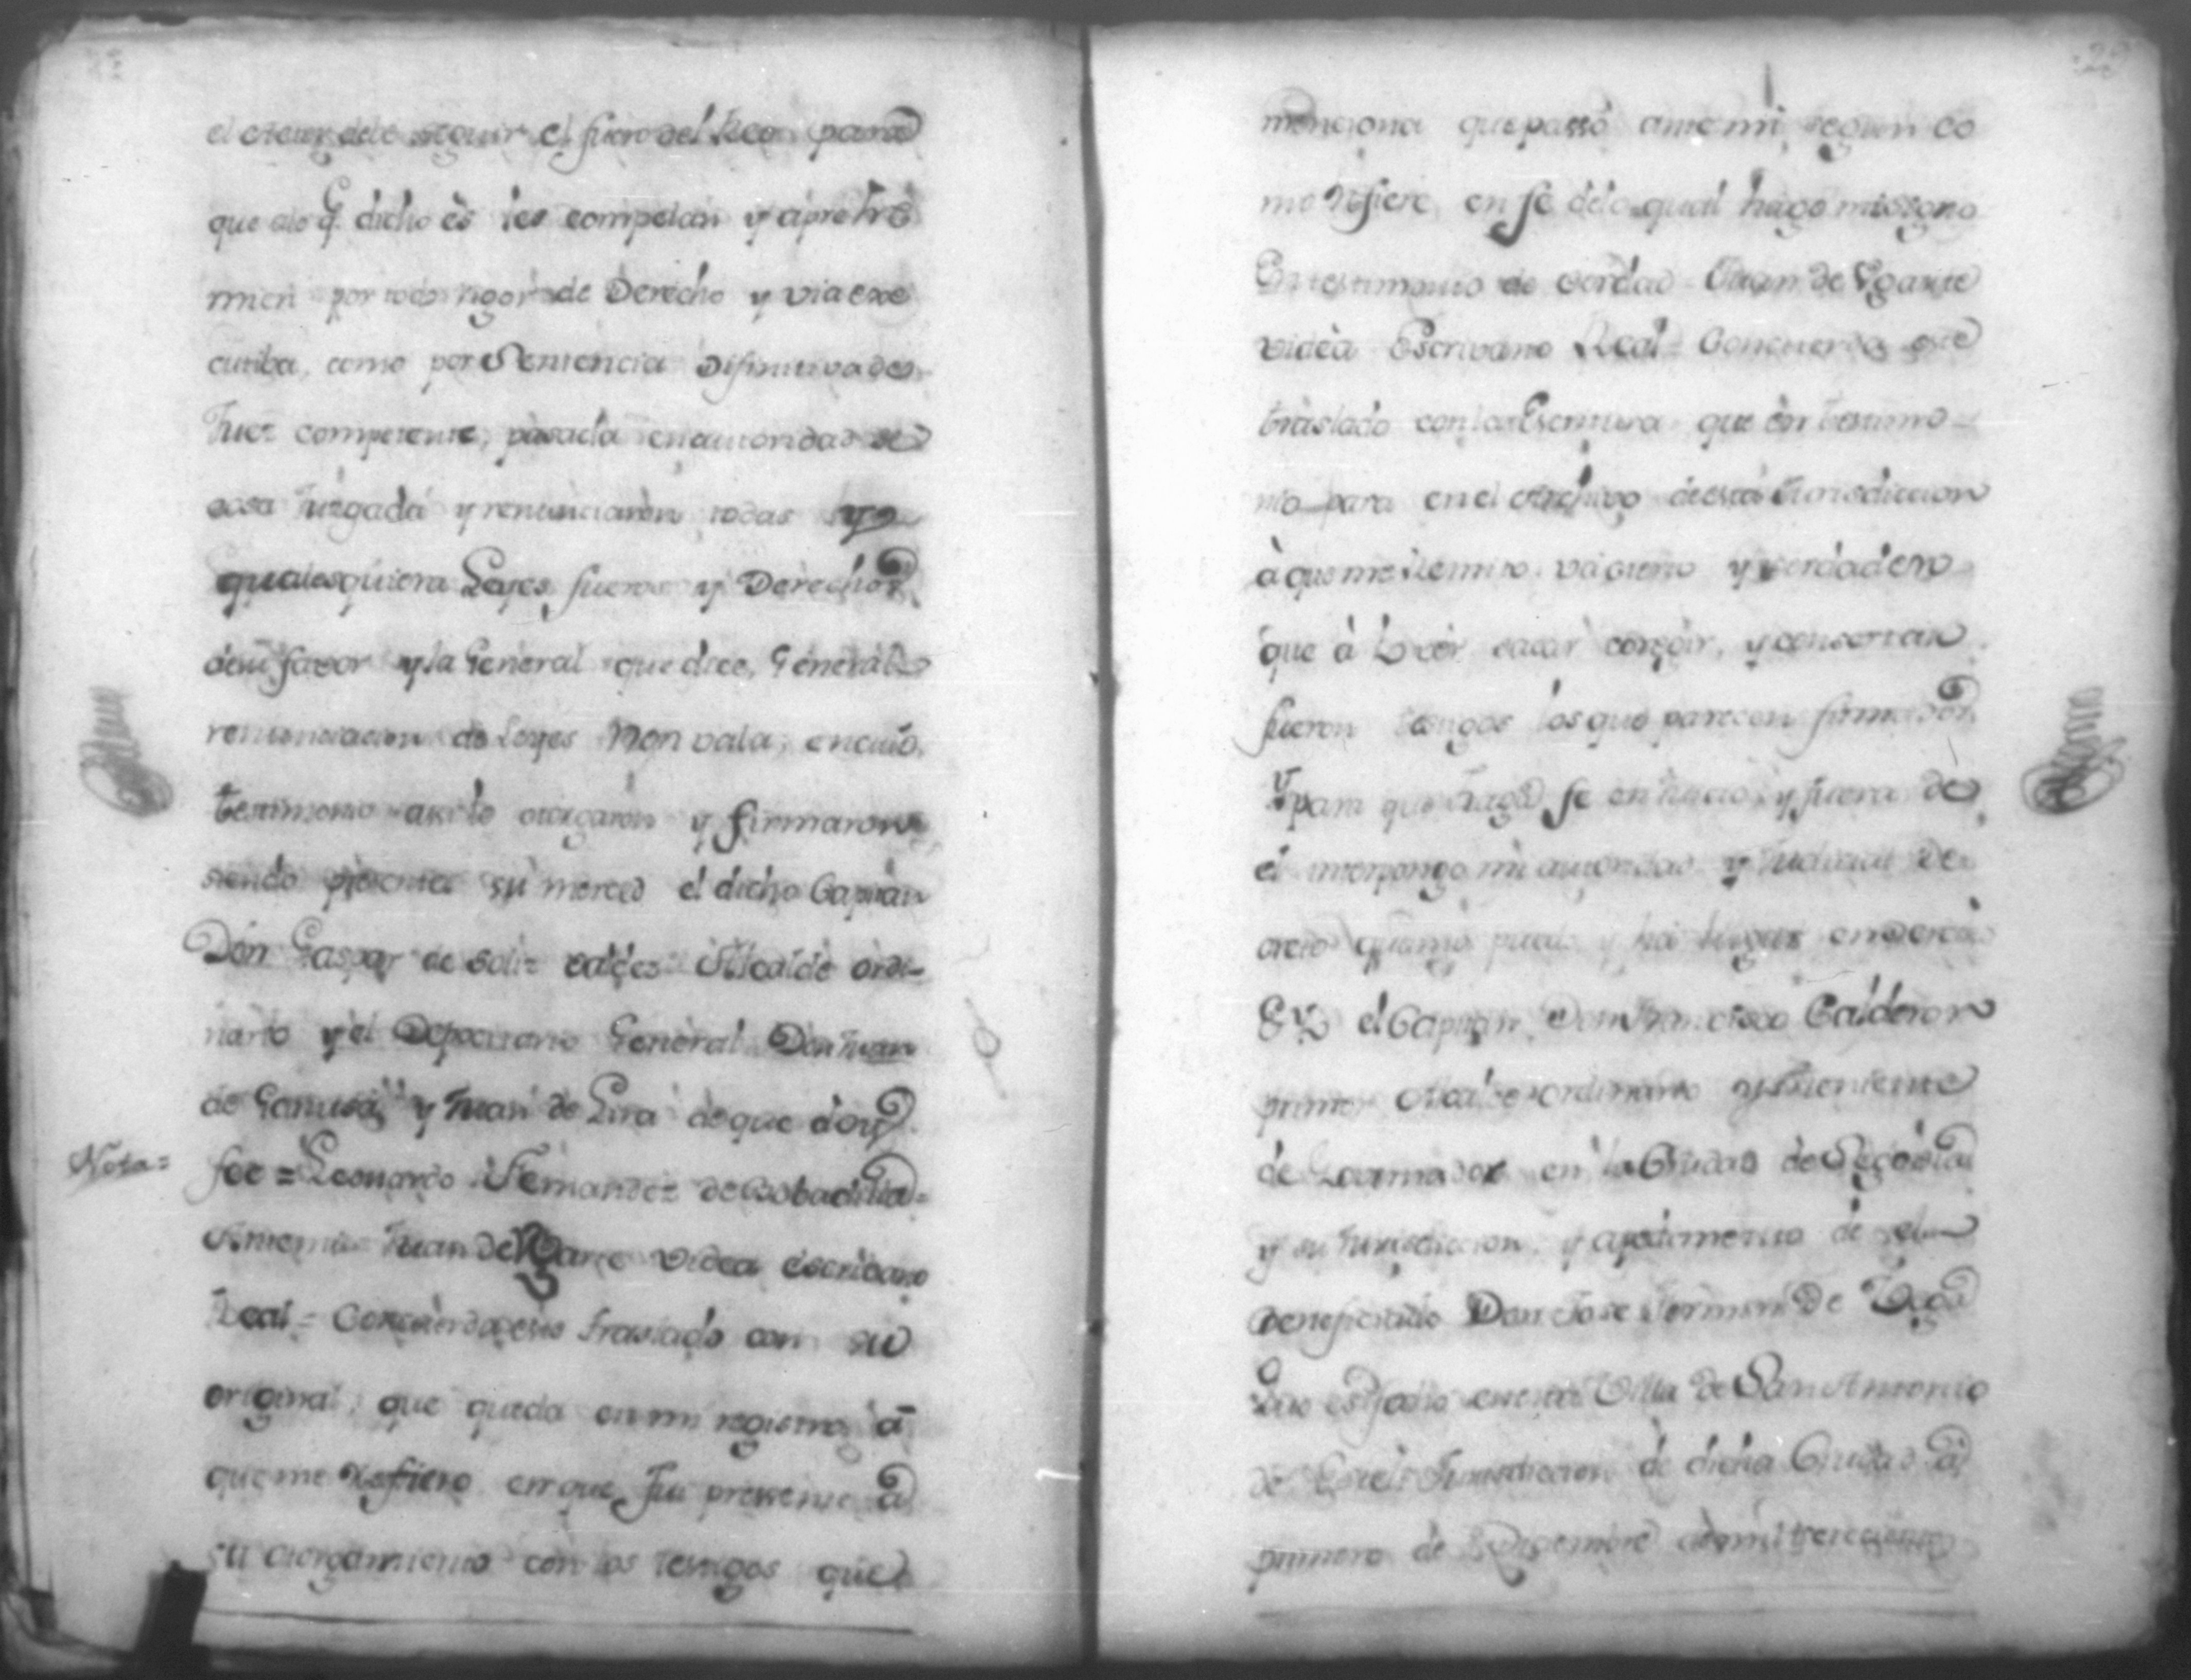 el Actor debe seguir el fuero del Reo para
que alo q. dicho ès les compelan y apre
mien por todo rigor de Derecho y via exe
cutiba, como por Sentencia Difinitiva de
Juez competente, pasada en autoridad de
cosa Juzgada y renunciaron todas y
qualesquiera Leyes fueros y Derechos
de su favor y la General que dice, General
renunciacion de Leyes Non vala, en cuio
testimonio asi lo otorgaron y firmaron
siendo presente su merced el dicho Capitan
Don Gaspar de Soliz Alcalde ordi-
nario y el Depocitario General Don Juan
de y Juan de Lira de que doy
Nota=
fee = Leonardo Fernandez de Bobadilla=
Ante mi Juan de Ugarte Videa escribano
Real = Concuerda este traslado con su
original, que queda en mi registro, à
que me refiero en que fui pressente à
su otorgamiento con los testigos que
menciona que passó ante mi, segun co
mo refiere, en fe delo qual hago mi signo
En testimonio de verdad Juan de Ugarte
videa Escrivano Real = Concuerda este
traslado con la Escritura que en testimo-
nio para en el Archivo de esta Jurisdiccion
à que me remito. va cierto y verdadero
que à lo ver sacar corregir, y consertar
fueron testigos los que parecen firmados
y para que haga fe en Juicio, y fuera de
el interpongo mi autoridad y Judicial De
creto quanto puedo y há lugar en derecho
Yo el Capitan Don Francisco Calderon
primer Alcalde ordinario y Theniente
de Governador en la Ciudad de Segovia
y su Jurisdiccion, y à pedimento de el
beneficiado Don Jose Fermin de
Que es fecho en esta Villa de San Antonio
de Esteli Jurisdiccion de dicha Ciudad à
primero de